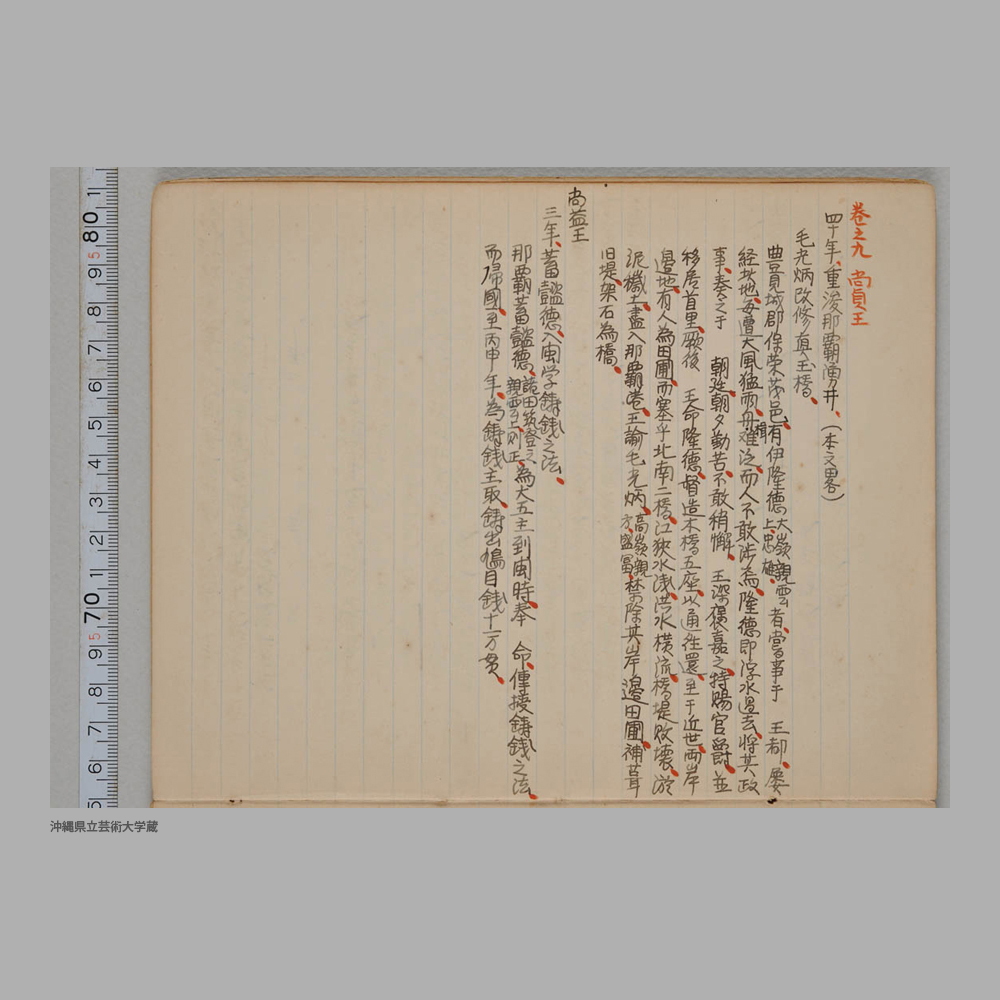 巻之九 尚貞王
四十年、重浚那覇湧井、(本文畧)
毛光炳改修真玉橋、
豊見城郡保栄茂邑、有伊隆德大嶺親雲上忠雄、者嘗事于 王都、屡
経此地、毎遭大風猛雨、舟難泛而人不敢渉焉、隆德即浮水過去、将其政
事、奏之于 朝廷、朝夕勤苦、不敢稍懈、 王深褒嘉之、特賜官爵、並
移居首里、厥後 王命隆德、督造木橋五座、以通往還、至于近世、両岸
邉地、有人為田圃、而塞乎北南二橋、江狭水浅、洪水横流、橋堤敗壊、淤
泥穢土、盡入那覇港、王諭毛光炳、高嶺親方盛冨、禁除其岸邉田圃、補葺
旧堤、架石為橋、
尚益王
三年、蓄懿德、入閩学鋳銭之法、
那覇蓄懿德、諸田筑登之親雲上則正、為大五主到閩時、奉 命、傳授鋳銭之法、
而帰國、至丙申年、為鋳銭主取、鋳出鳩目銭十一万貫、
80
70
沖縄県立芸術大学蔵